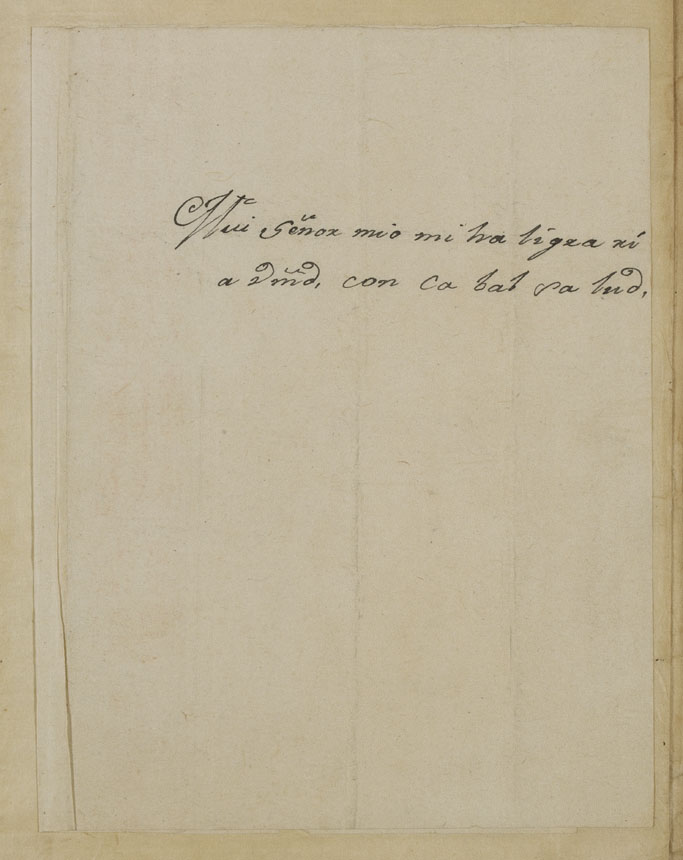 Mui señor mio mi ha ligra ri
a Vmd, con ca bal sa lud,